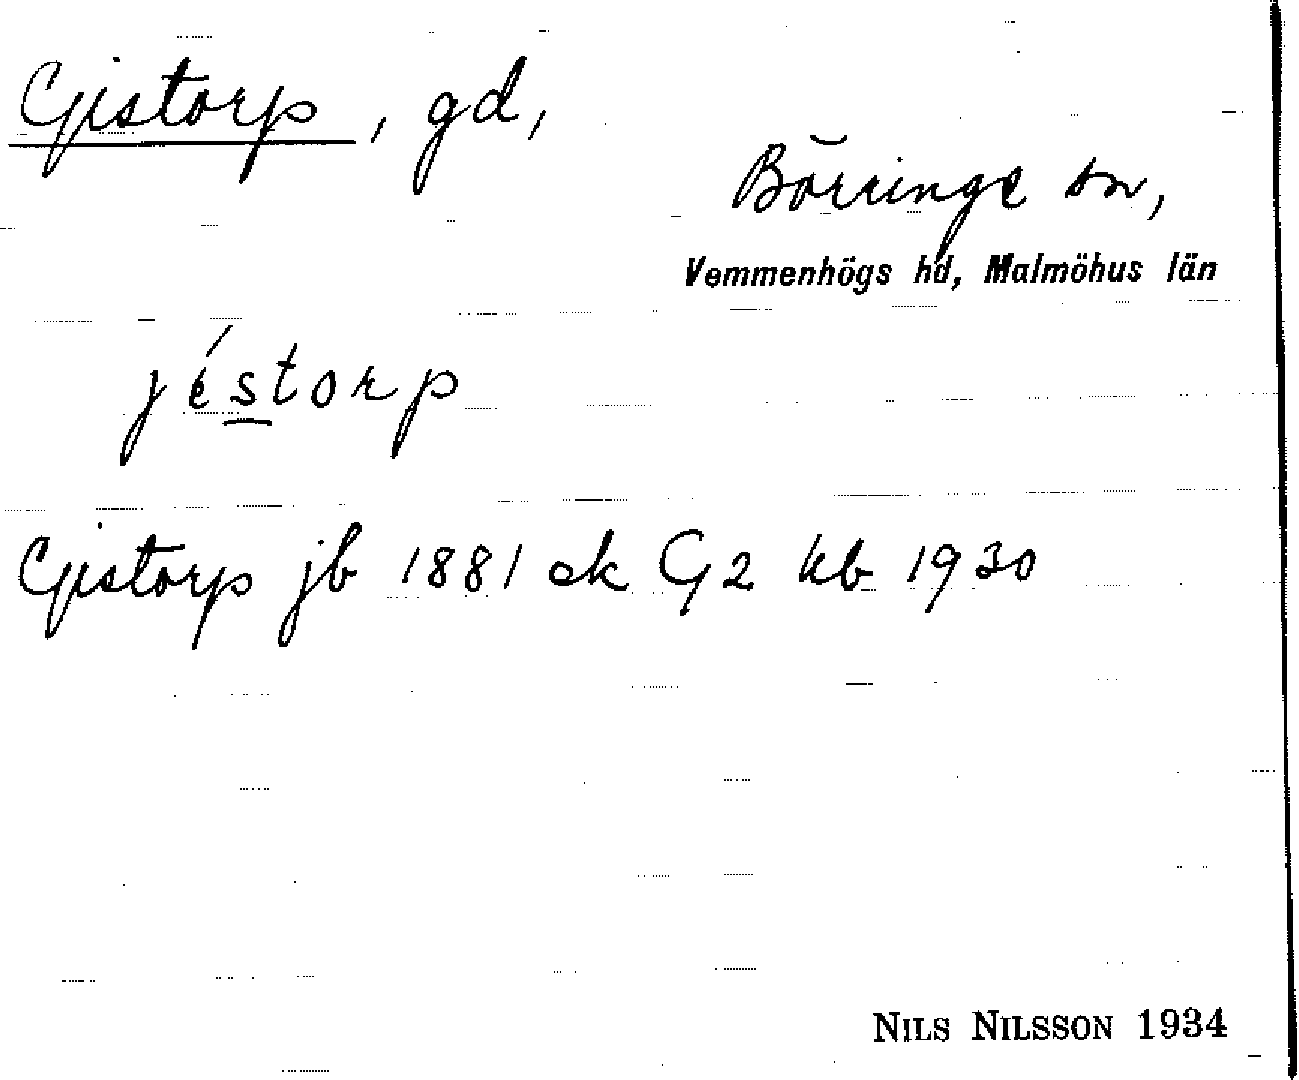 Gistorp, gd,
Börringe sn,
Vemmenhögs hd, Malmöhus län
jéstorp
Gistorp jb 1881 ek G2 kb 1930
NILS NILSSON 1934